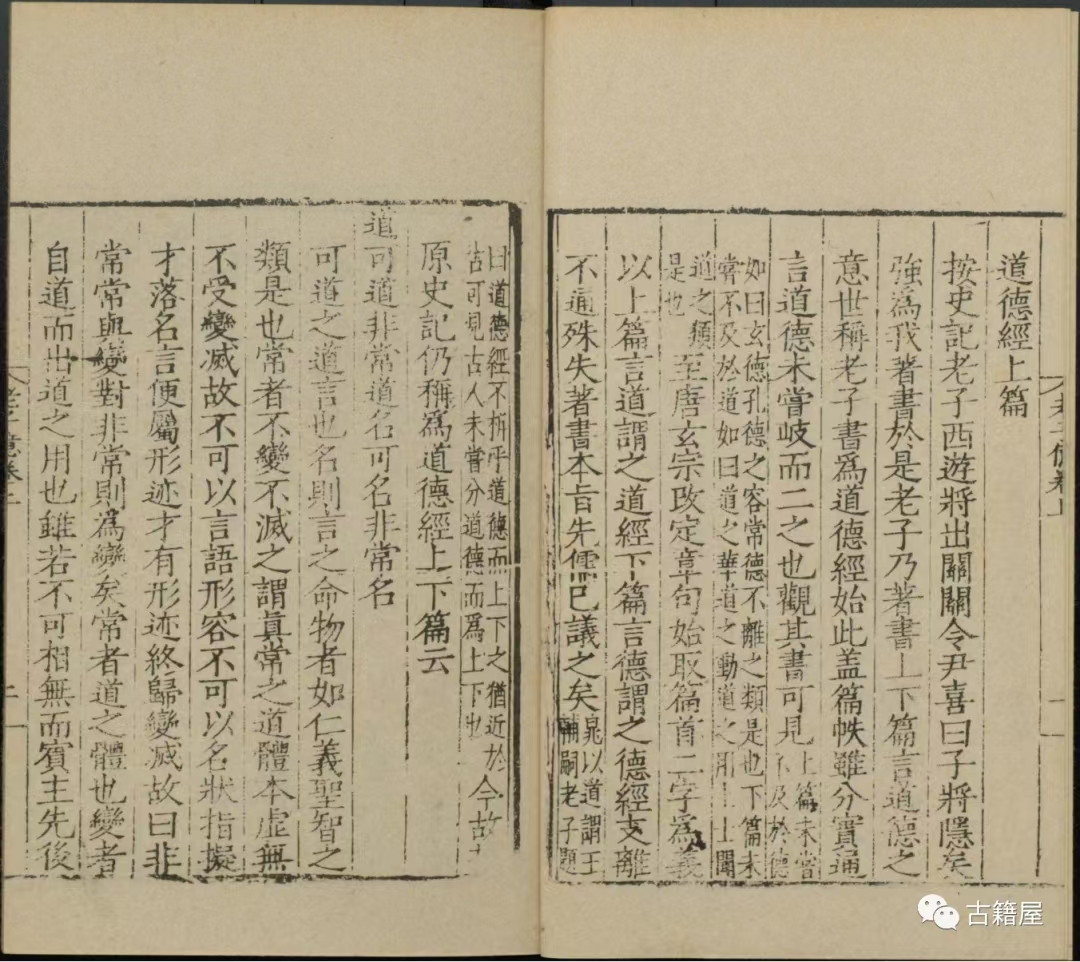 道德經上篇
按史記老子西遊將出關關令尹喜曰子將隱矣
強為我著書於是老子乃著書上下篇言道德之
意世稱老子書爲道德經始此盖篇帙雖分實通
言道德未嘗岐而二之也觀其書可見上篇未嘗不及於德
如曰玄德孔德之容常德不離之類是也下篇未嘗不及於道如曰道之華道之動道之用上士聞
道之類是也至唐玄宗改定章句始取篇首二字爲義
以上篇言道謂之道經下篇言德謂之德經支離
不通殊失著書本旨先儒已議之矣晁以道謂王輔嗣老子題
曰道德經不析乎道德而上下之猶近於古可見古人未嘗分道德而爲上下也今故
原史記仍稱爲道德經上下篇云
道可道非常道名可名非常名
可道之道言也名則言之命物者如仁義聖智之
類是也常者不變不滅之謂眞常之道體本虛無
不受變滅故不可以言語形容不可以名狀指擬
才落名言便屬形迹才有形迹終歸變滅故曰非
常常與變對非常則爲變矣常者道之體也變者
自道而出道之用也雖若不可相無而賓主先後
古籍屋